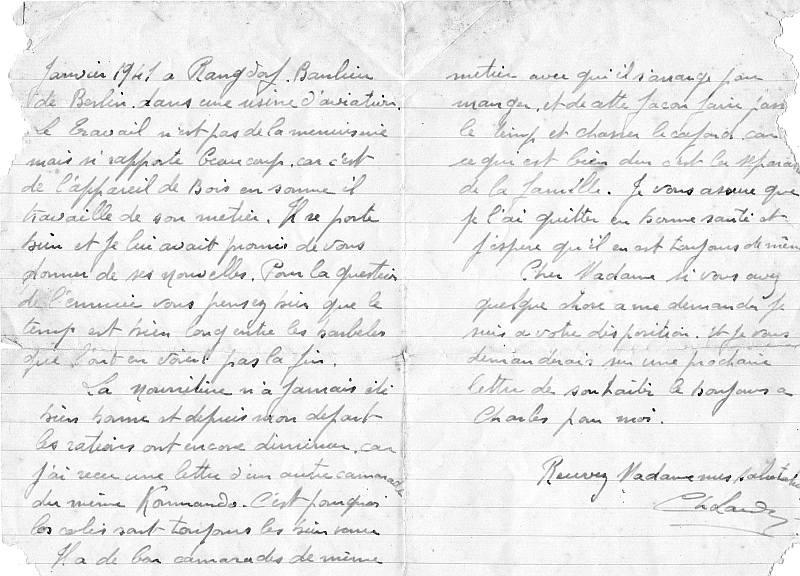 Janvier 1941 a Rangdorf. Banlieu
de Berlin. dans une usine d'aviation.
Le travail n'est pas de la menuiserie
mais si rapporte beaucoup. car c'est
de l'appareil de Bois en somme il
travaille de son metier. Il se porte
bien et Je lui avait promis de vous
donner de ses nouvelles. Pour la question
de l'ennuie vous pensez bien que le
temp est bien long entre les barbelés
que l'ont en voient pas la fin.
La nourriture n'a Jamais été
bien bonne et depuis mon depart
les rations ont encore diminuer. car
j'ai recu une lettre d'un autre camarade
du même Kommando. C'est pourquoi
les colis sont toujours les bien venu
Il a de bon camarades de même
metier avec qui il s'arrange pour
manger. et de cette facon faire pass
le temp et chasser le cafard. car
ce qui est bien dur c'est la separa
de la famille. Je vous assure que
Je l'ai quitter en bonne santé et
j'espere qu'il en est toujours de mêm
Cher Madame si vous avez
quelque chose a me demander Je
suis a votre disposition. et Je vous
demanderais sur une prochaine
lettre de souhaiter le bonjour a
Charles pour moi.
Recevez Madame mes salutatio